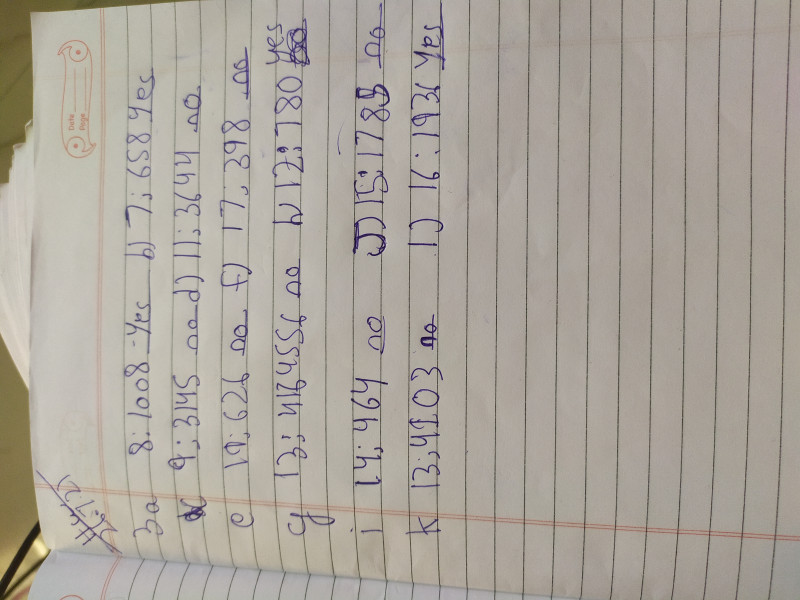 Date
Page
3a 8:1008 - Yes b) 7;658 Yes
c 9;3145 no d) 11;3644 no
e 19;626 no f) 17;398 no
g 13;4164556 no h) 12;780 Yes
i 14;464 no J) 15;1785 no
k 13;4203 no l) 16:1936 Yes